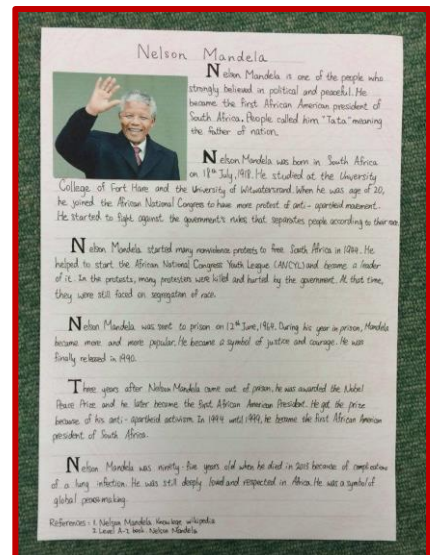 Nelson Mandela
Nelson Mandela is one of the people who
strongly believed in political and peaceful. He
became the first African American president of
South Africa. People called him "Tata" meaning
the father of nation.
Nelson Mandela was born in South Africa
on 18th July, 1918. He studied at the University
College of Fort Hare and the University of Witwatersrand. When he was age of 20,
he joined the African National Congress to have more protest of anti-apartheid movement.
He started to fight against the government's rules that separates people according to their race.
Nelson Mandela started many nonviolence protests to free South Africa in 1944. He
helped to start the African National Congress Youth League (ANCYL) and became a leader
of it. In the protests, many protesters were killed and hurted by the government. At that time,
they were still faced on segregation of race.
Nelson Mandela was sent to prison on 12th June, 1964. During his year in prison, Mandela
became more and more popular. He became a symbol of justice and courage. He was
finally released in 1990.
Three years after Nelson Mandela came out of prison, he was awarded the Nobel
Peace Prize and he later became the first African American President. He got the prize
because of his anti-apartheid activism. In 1994 until 1999, he became the first African American
president of South Africa.
Nelson Mandela was ninety-five years old when he died in 2013 because of complications
of a lung infection. He was still deeply loved and respected in Africa. He was a symbol of
global peacemaking.
References: 1. Nelson Mandela wikipedia
2. Level A-Z book: Nelson Mandela